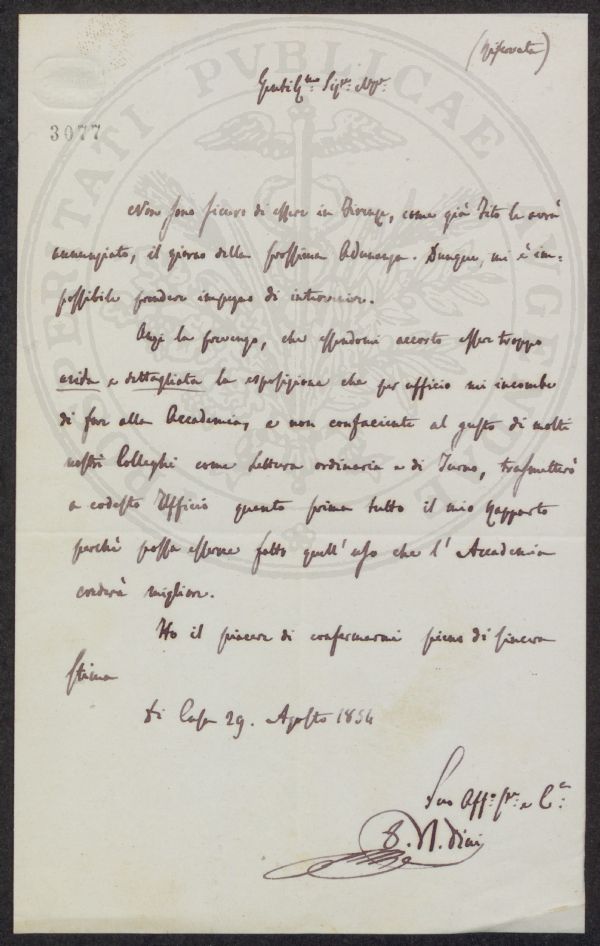 (Riservata)
Gentil.mo Sig.re
3077
Non sono sicuro di essere in Firenze, come già Tito le avrà
annunziato, il giorno della prossima Adunanza. Dunque, mi è im=
possibile prendere impegno di intervenire.
Anzi la prevengo, che essendomi accorto essere troppo
arida e dettagliata la esposizione che per ufficio mi incombe
di fare alla Accademia, e non confaciente al gusto di molti
nostri Colleghi come Lettura ordinaria e di Turno, trasmetterò
a codesto Uffizio quanto prima tutto il mio Rapporto
perchè possa esserne fatto quell' uso che l' Accademia
crederà migliore.
Ho il piacere di confermarmi pieno di sincera
stima
di Casa 29. Agosto 1854
Suo Aff.o
Dini
PROSPERITATI PVBLICAE AVGENDAE